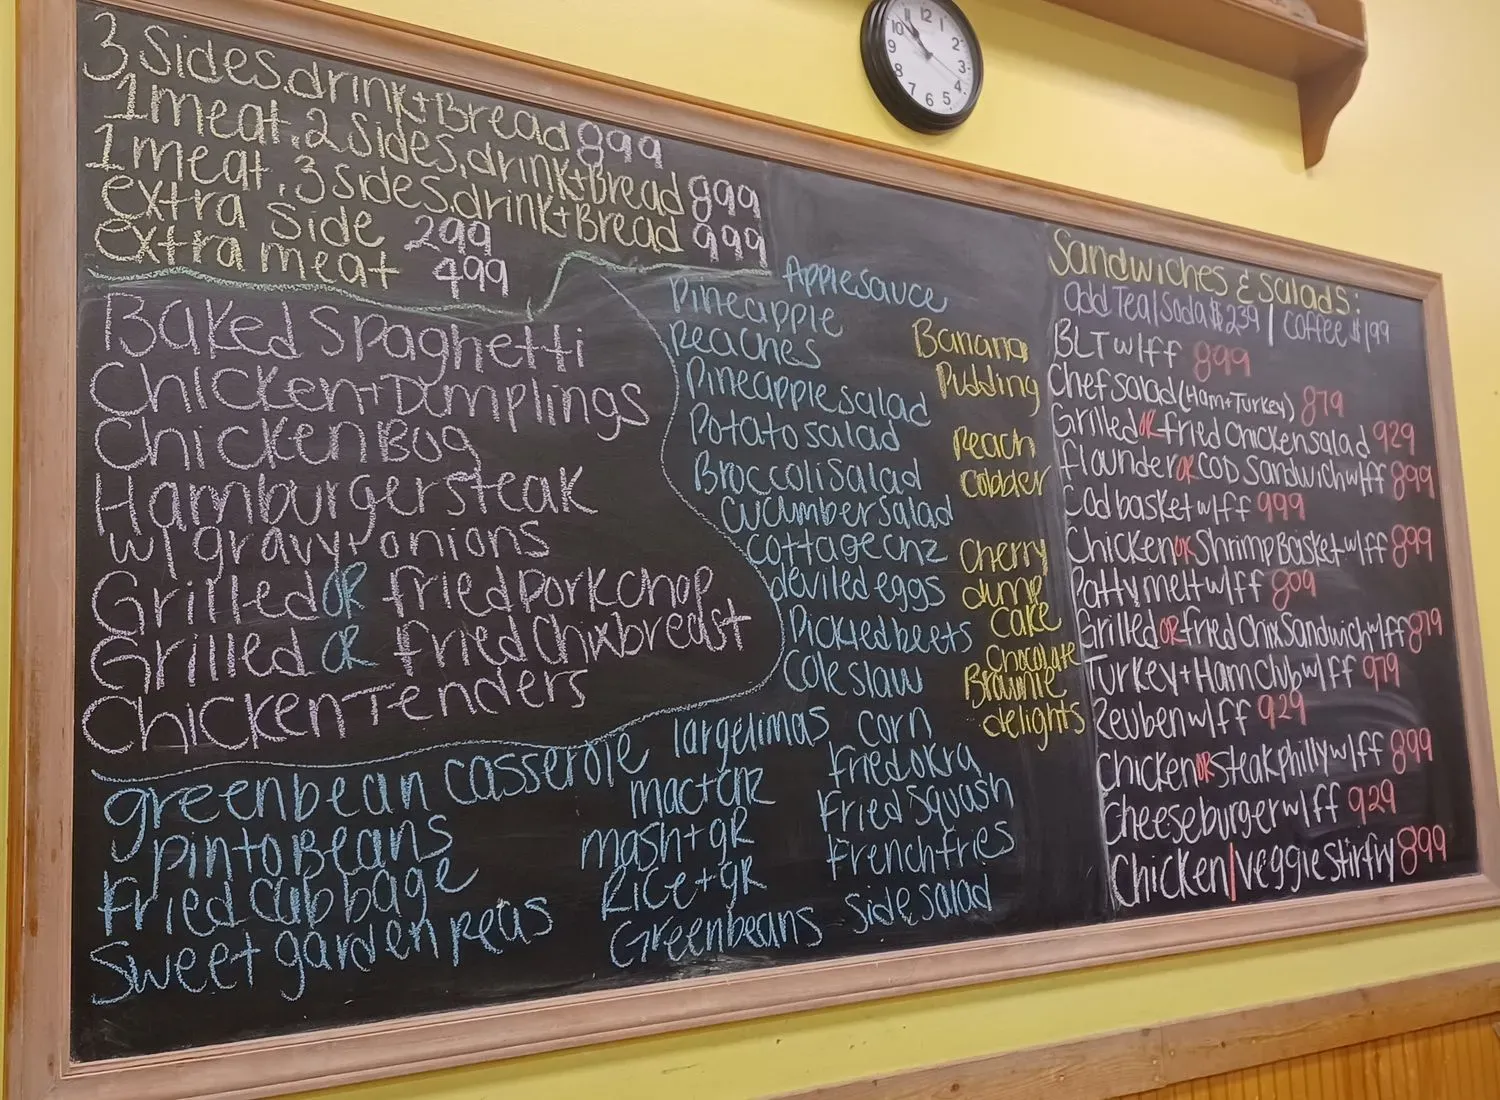 3 sides, drink + Bread 899
1 meat, 2 sides, drink + Bread 899
1 meat, 3 sides, drink + Bread 999
extra side 299
extra meat 499
Baked Spaghetti
Chicken + Dumplings
Chicken Bog
Hamburger steak
w/ gravy + onions
Grilled OR fried pork chop
Grilled OR fried Chix breast
Chicken Tenders
Applesauce
Pineapple
Peaches
Pineapple salad
Potato salad
Broccoli Salad
cucumber salad
cottage chz
deviled eggs
Pickled beets
Cole slaw
Banana
Pudding
Peach
cobbler
Cherry
dump
cake
Chocolate
Brownie
delights
greenbean casserole
pinto Beans
Fried cabbage
Sweet garden peas
large limas
mac + chz
mash + gr
Rice + gr
Greenbeans
corn
fried okra
Fried Squash
French fries
side salad
Sandwiches & salads:
add Tea/Soda $239 / Coffee $199
BLT w/ff 899
Chef salad (Ham + Turkey) 879
Grilled OR fried Chicken salad 929
flounder OR COD Sandwich w/ff 899
Cod basket w/ff 999
Chicken OR Shrimp Basket w/ff 899
Patty melt w/ff 809
Grilled OR fried Chix Sandwich w/ff 879
Turkey + Ham Club w/ff 979
Reuben w/ff 929
Chicken OR Steak philly w/ff 899
Cheeseburger w/ff 929
Chicken / Veggie stir fry 899
12
1
2
3
4
5
6
7
8
9
10